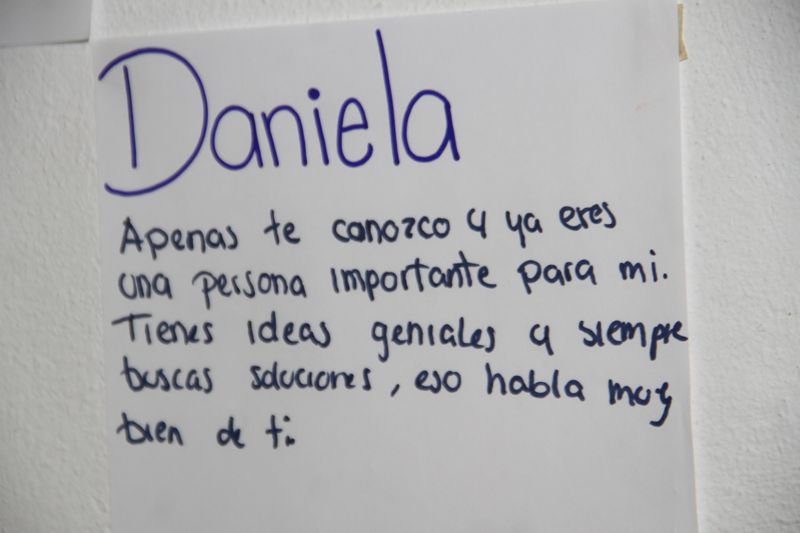 Daniela
Apenas te conozco y ya eres
una persona importante para mi.
Tienes ideas geniales y siempre
buscas soluciones, eso habla muy
bien de ti.